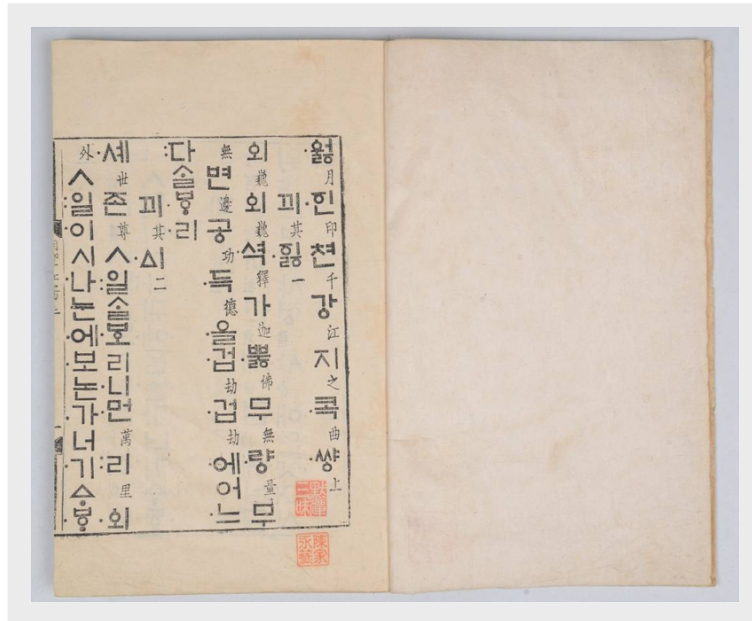 ·ᅌᅯᇙ月·ᅙᅵᆫ印쳔千강江지之·콕曲·썅上
끠其·ᅙᅵᇙ一
외巍외巍·셕釋가迦·뿌ᇙ佛무無·량量무
無변邊공功·득德·을·겁劫·겁劫·에어느
:다ᄉᆞᆯᄫᆞ·리
끠其·ᅀᅵ二
·셰世존尊ㅅ:일ᄉᆞᆯᄫᅩ·리·니·먼萬:리里·외
外ㅅ:일이시·나·눈·에·보논·가너·기ᅀᆞ·ᄫᆞ